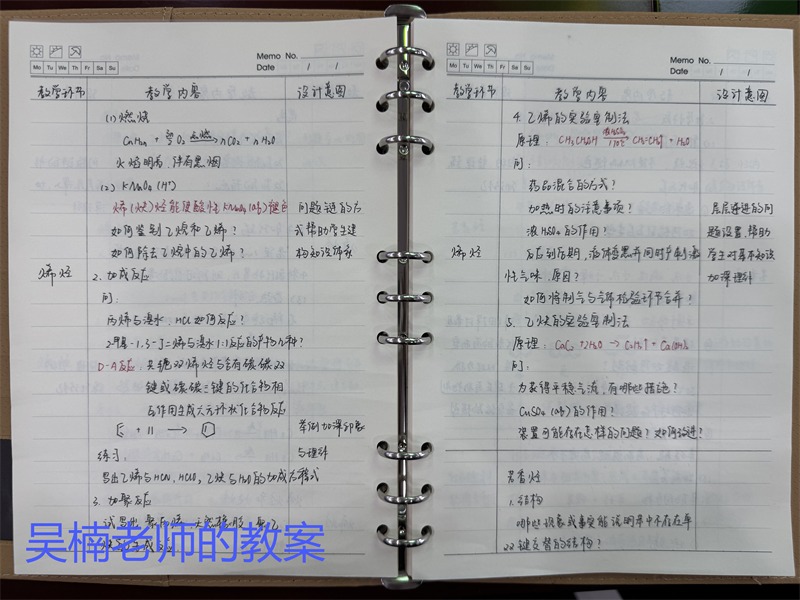 Memo No.
Mo Tu We Th Fr Sa Su
Date / /
教学环节 教学内容 设计意图
(1) 燃烧
火焰明亮,伴有黑烟
(2) KMnO4 (H+)
烯(炔)烃能使酸性KMnO4(aq)褪色
如何鉴别乙烷和乙烯?
如何除去乙烷中的乙烯?
问题链的方
式帮助学生建
构知识体系
烯烃
2. 加成反应
问:
丙烯与溴水、HCl如何反应?
2-甲基-1,3-丁二烯与溴水1:1反应的产物几种?
D-A反应,共轭双烯烃与含有碳碳双
键或碳碳三键的化合物相
互作用生成六元环状化合物反应
举例加深印象
与理解
练习,
写出乙烯与HCN、HClO,乙炔与H2O的加成方程式
3. 加聚反应
试写出聚丙烯、天然橡胶、聚乙
吴楠老师的教案
Memo No.
Mo Tu We Th Fr Sa Su
Date / /
教学环节 教学内容 设计意图
4. 乙烯的实验室制法
原理: CH3CH2OH 浓H2SO4 170℃ CH2=CH2↑ + H2O
问:
药品混合的方式?
加热时的注意事项?
浓H2SO4的作用?
反应到后期,液体变黑并闻时产刺激
性气味,原因?
如何将制气与气体检验环节合并?
烯烃
层层递进的问
题设置,帮助
学生对基本知识
加深理解
5. 乙炔的实验室制法
原理: CaC2 + 2H2O → C2H2↑ + Ca(OH)2
问:
为获得平稳气流,有哪些措施?
CuSO4(aq)的作用?
装置可能存在怎样的问题?如何改进?
芳香烃
1. 结构
哪些现象或事实能说明苯中不存在单
双键交替的结构?